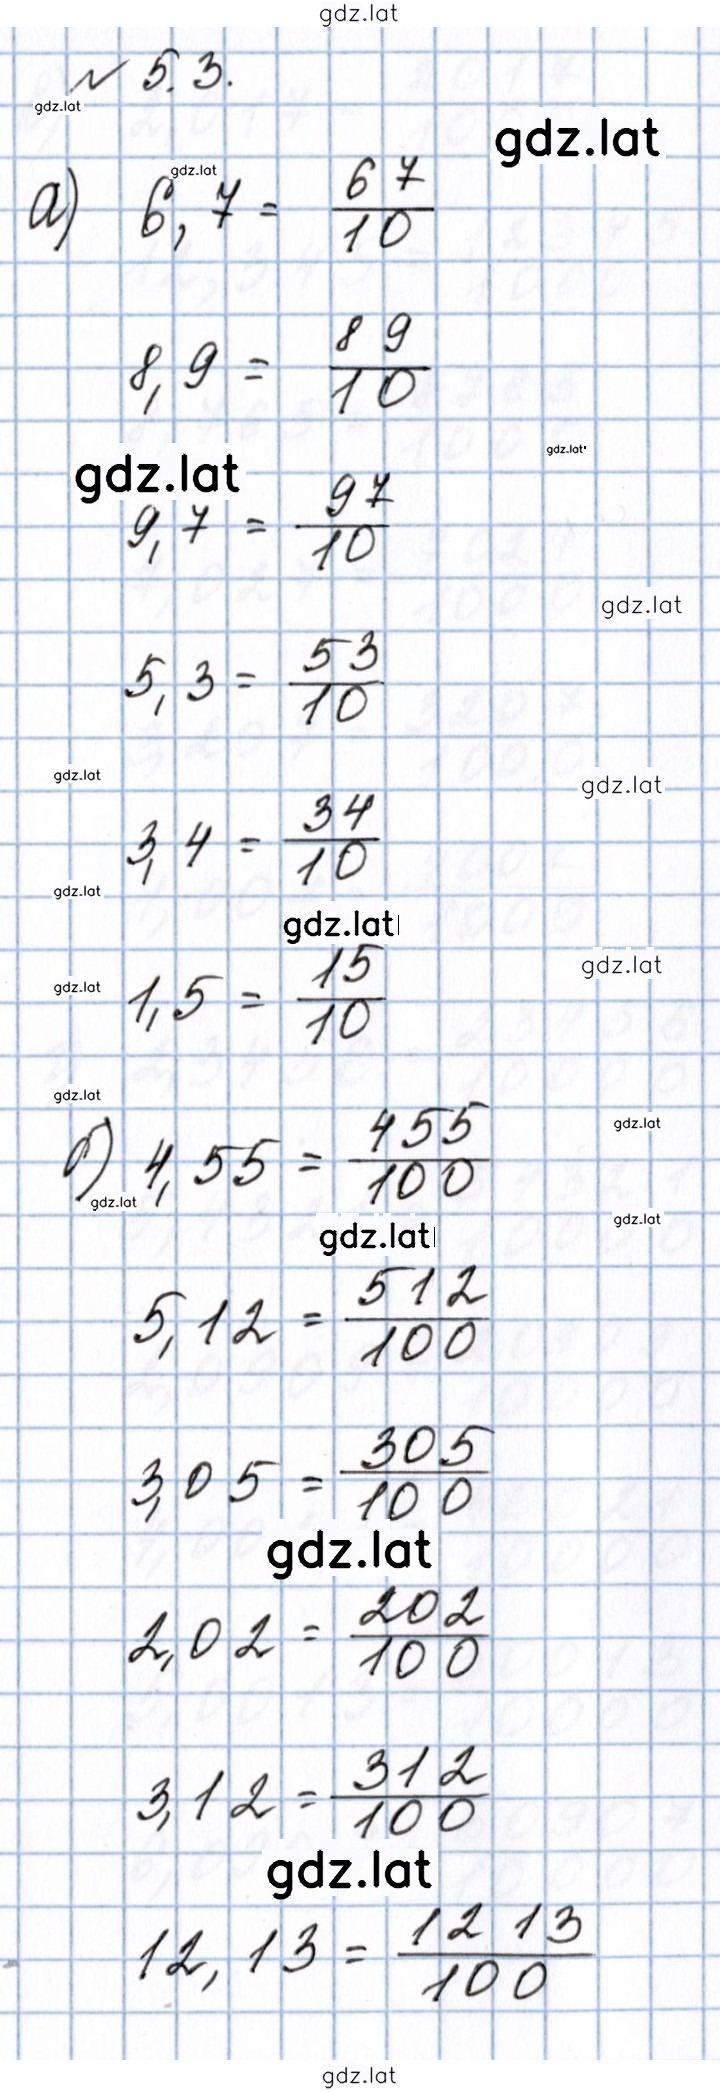 gdz.lat
№ 5.3.
gdz.lat
gdz.lat
gdz.lat
а) 6,7 = 67/10
8,9 = 89/10
gdz.lat
gdz.lat
9,7 = 97/10
gdz.lat
5,3 = 53/10
gdz.lat
gdz.lat
3,4 = 34/10
gdz.lat
gdz.lat
gdz.lat
gdz.lat
1,5 = 15/10
gdz.lat
gdz.lat
б) 4,55 = 455/100
gdz.lat
gdz.lat
gdz.lat
5,12 = 512/100
3,05 = 305/100
gdz.lat
2,02 = 202/100
3,12 = 312/100
gdz.lat
12,13 = 1213/100
gdz.lat